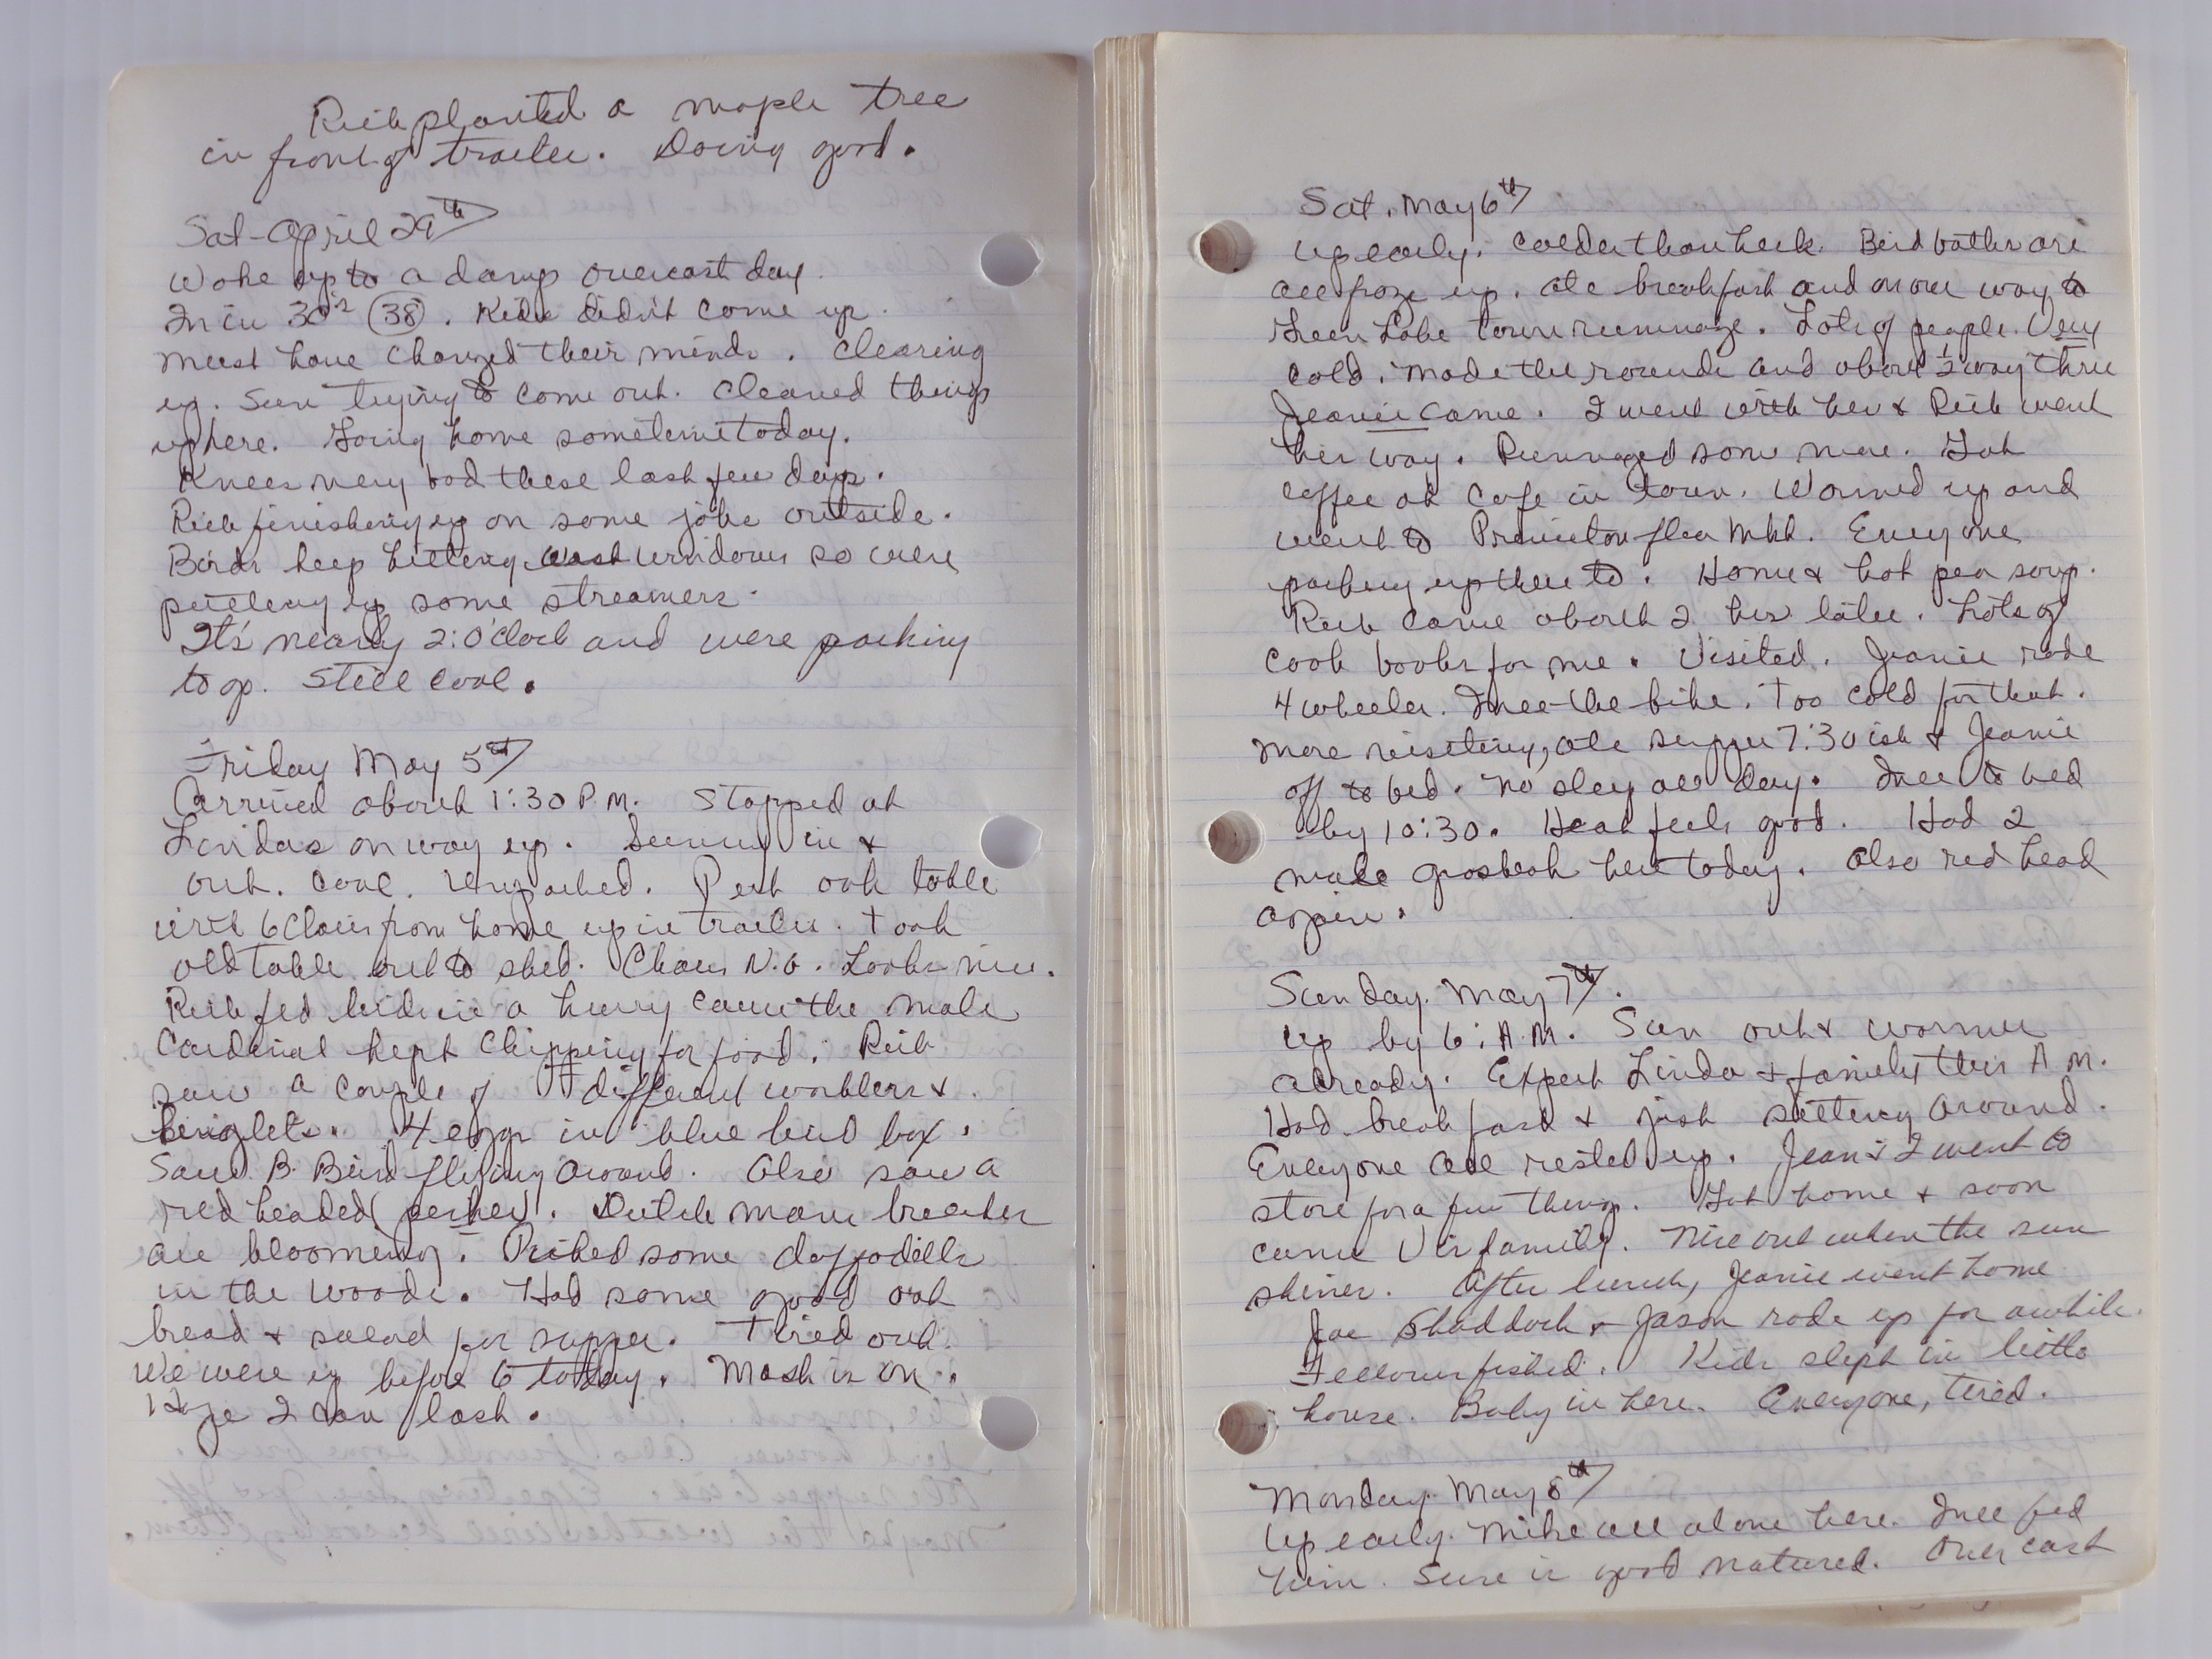 Rich planted a maple tree
in front of trailer. Doing good.
Sat-April 29th
Woke up to a damp overcast day.
In in 30's (38). Kids didn't come up.
must have changed their minds. Clearing
up. Sun trying to come out. Cleaned things
up here. Going home sometime today.
Knees very bad these last few days.
Rich finishing up on some jobs outside.
Birds keep hitting windows so were
putting up some streamers.
It's nearly 2:O'Clock and were packing
to go. Still cool.
Friday May 5th
Arrived about 1:30 P.M. Stopped at
Lindas on way up. Sunny in &
out. Cool. Unpacked. Put oak table
with 6 Chairs from home up in trailer. Took
old table out to shed. Chairs N.O. Looks nice.
Rich fed birds in a hurry cause the male
Cardinal kept Chipping for food. Rich
saw a couple of different warblers &
kinglets. 4 eggs in blue bird box.
Saw B. Bird flying around. Also saw a
red headed pecker. Dutch mans breeches
are blooming. Picked some daffodills
in the woods. Had some good oat
bread & salad for supper. Tired out.
We were up before 6 today. Mash is on.
Hope I can last.
Sat. May 6th
Up early. Colder than heck. Bird baths are
all froze up. Ate breakfast and on our way to
Green Lake town rummage. Lots of people. Very
cold. Made the rounds and about 1/2 way thru
Jeanie came. I went with her & Rich went
his way. Rummaged some more. Got
coffee at Cafe in town. Warmed up and
went to Princeton flea Mkt. Everyone
packing up there to. Home & hot pea soup.
Rich came about 2 hrs later. Lots of
cook books for me. Visited. Jeanie rode
4 wheeler. Inee the bike. Too cold for that.
More visiting, ate supper 7:30 ish & Jeanie
off to bed. No sleep all day. Inee to bed
by 10:30. Heat feels good. Had 2
male grosbeak here today. Also red head
again.
Sunday. May 7th.
Up by 6: A.M. Sun out & warmer
already. Expect Linda & family this A M.
Had breakfast & just sitting around.
Everyone all rested up. Jean & I went to
store for a few things. Got home & soon
came V's family. Nice out when the sun
shines. After lunch, Jeanie went home
Joe Shaddock & Jason rode up for awhile.
Fellows fished. Kids slept in little
house. Baby in here. Everyone, tired.
Monday. May 8th
Up early. Mike all alone here. Inee fed
him. Sure is good natured. Over cast